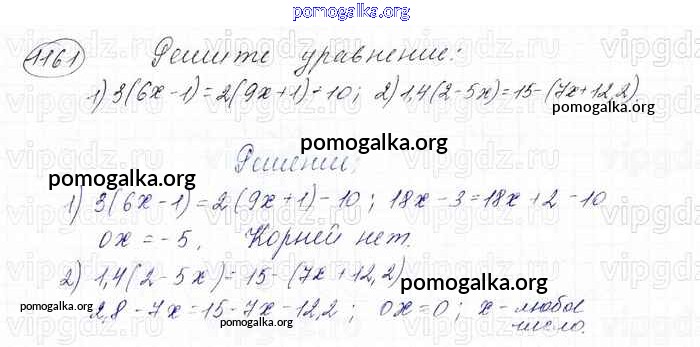 pomogalka.org
1161 Решите уравнение:
1) 3(6x-1)=2(9x+1)-10; 2) 1,4(2-5x)=15-(7x+12,2).
pomogalka.org
pomogalka.org
Решение:
pomogalka.org
1) 3(6x-1)=2(9x+1)-10; 18x-3=18x+2-10
0x=-5, Корней нет.
2) 1,4(2-5x)=15-(7x+12,2)
pomogalka.org
pomogalka.org
2,8-7x=15-7x-12,2; 0x=0; x-любое
число.
pomogalka.org
vipgdz.ru